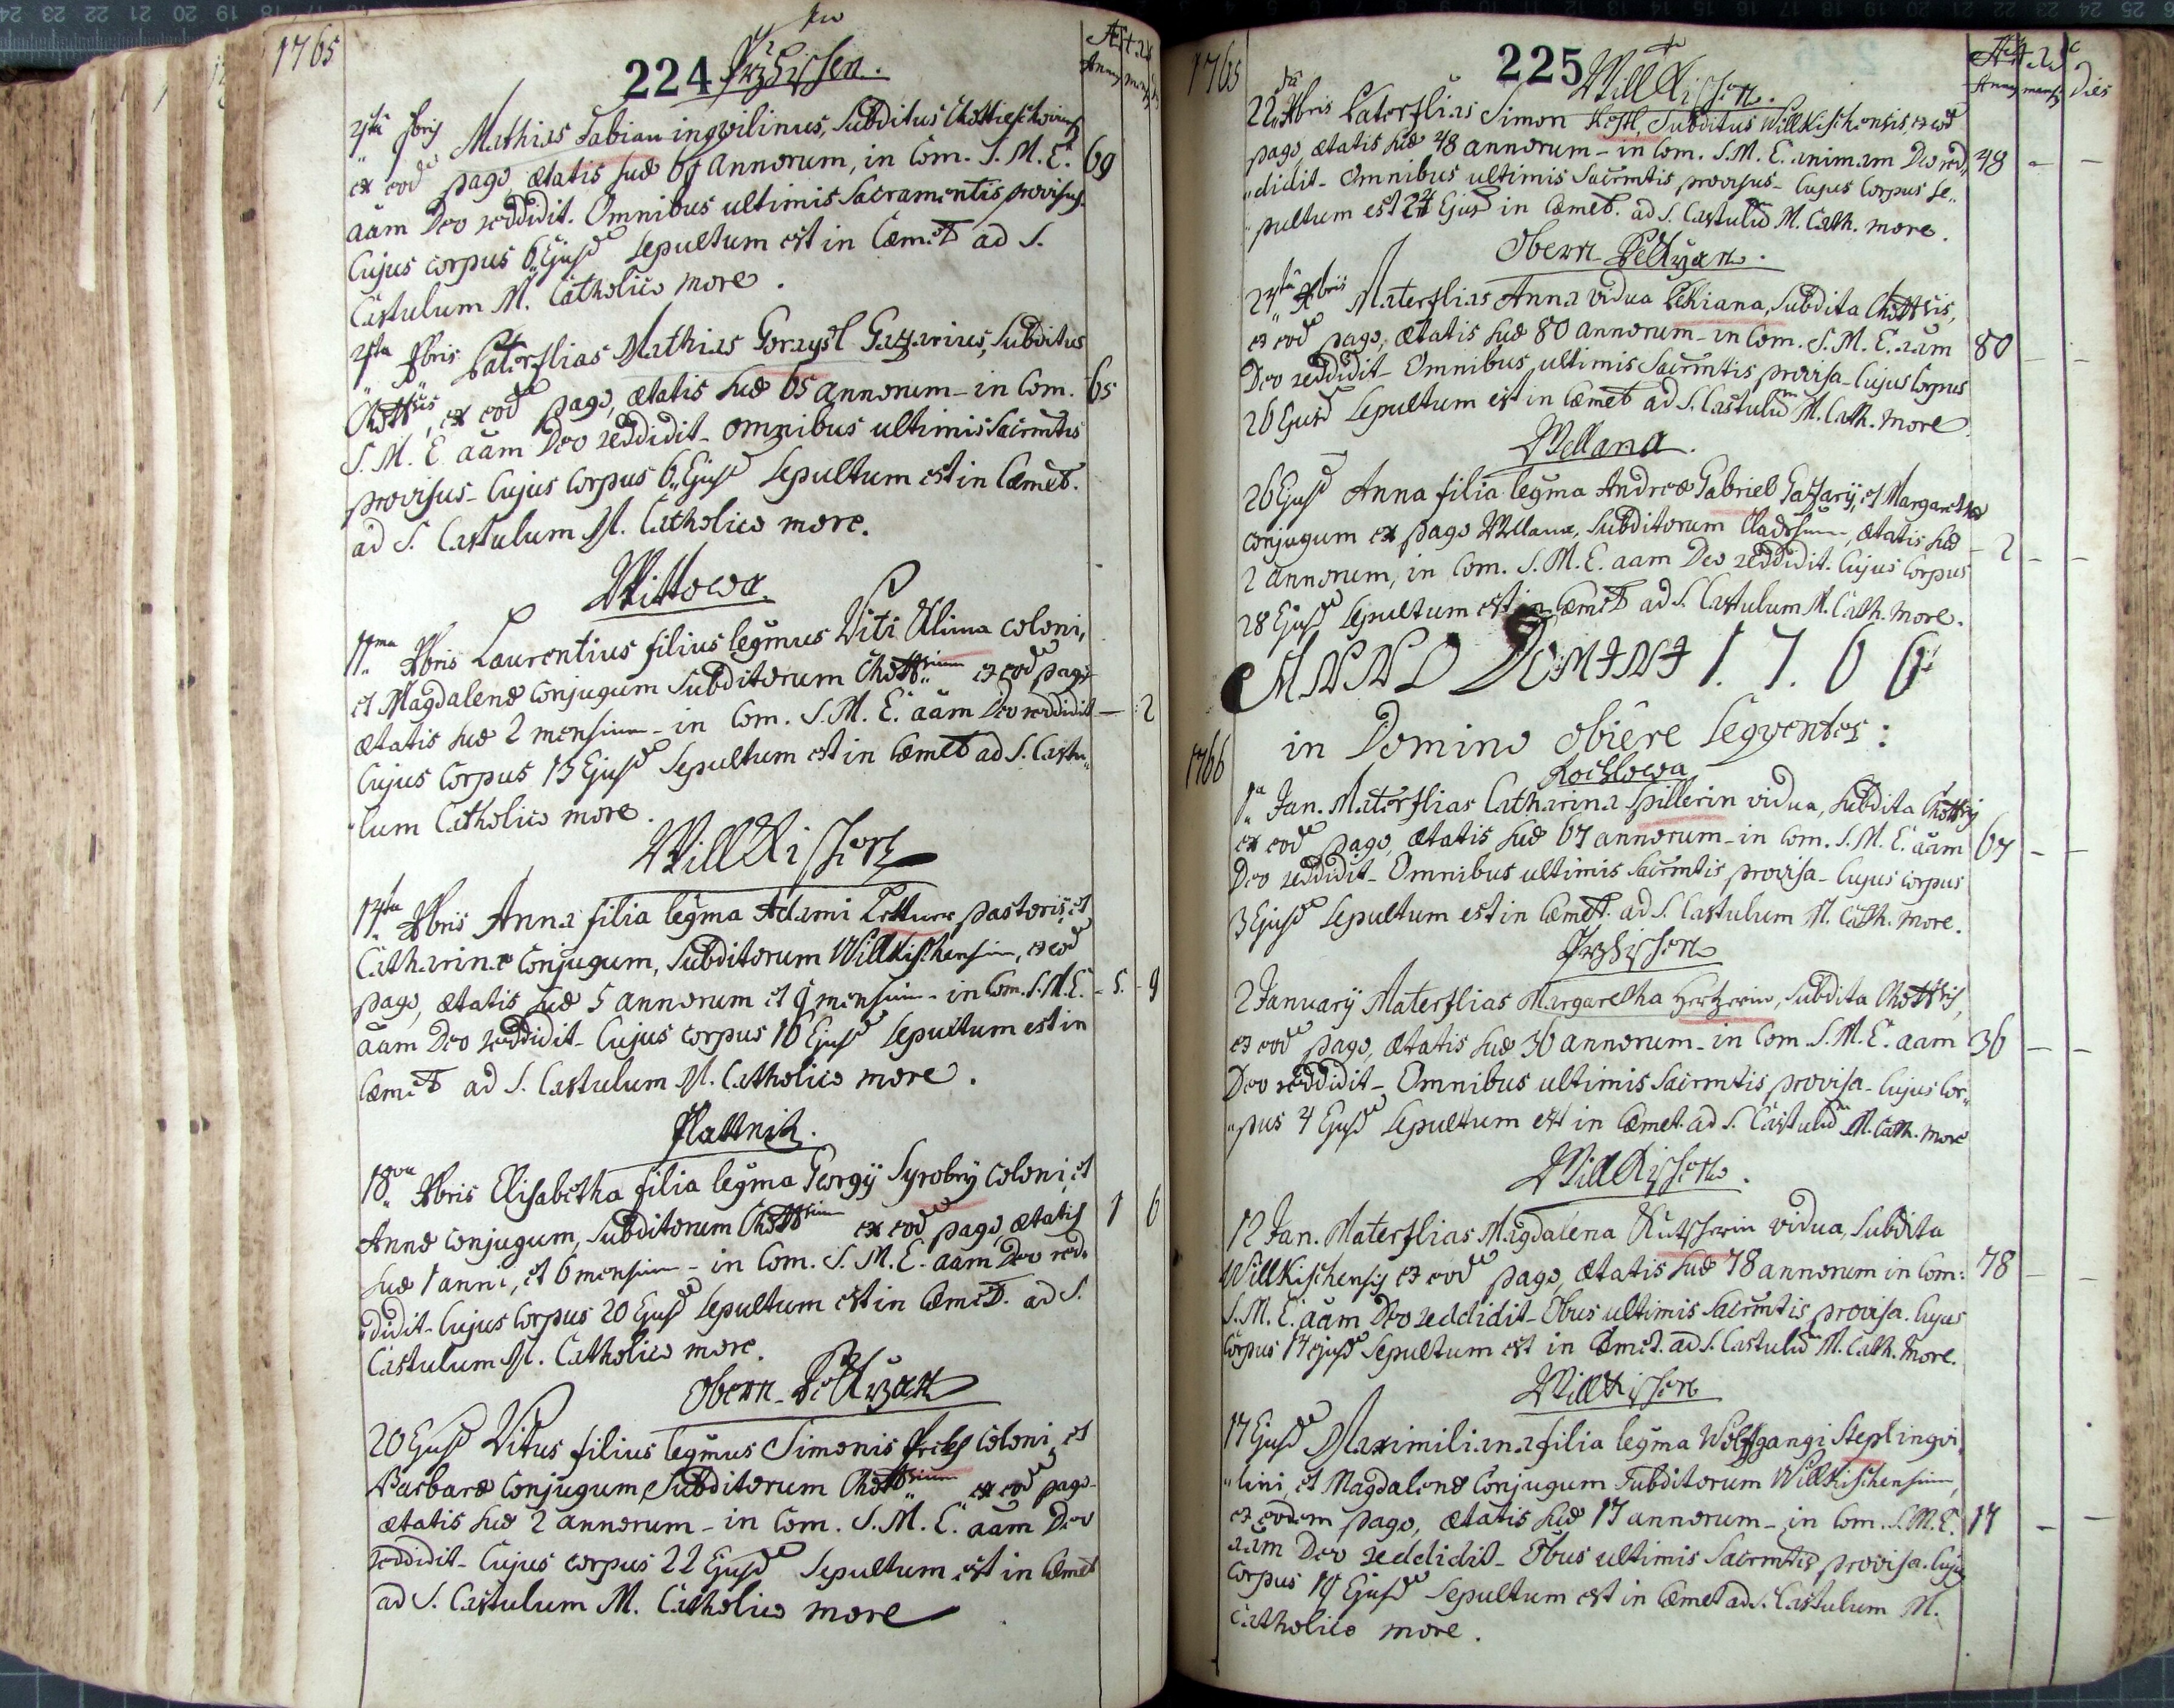 1765
224
Przhissen.
Ætatis
Anny mens
4ta Xbris Mathias Fabian inqvilinus, Subditus Chottieschov
ex eod pago, ætatis suæ 69 annorum, in Com. S. M. E. 69
aam Deo reddidit. Omnibus ultimis Sacramentis provisus.
Cujus corpus 6 Ejusd Sepultum est in Cœmet ad S.
Castulum M. Catholico more.
4ta Xbris Paterflias Mathias Gazarius, Subditus
Chottsis, ex eod pago, ætatis suæ 65 annorum - in Com. 65
S. M. E aam Deo reddidit - omnibus ultimis Sacrmtis
provisus - Cujus Corpus 6 Ejusd Sepultum est in Cœmet.
ad S. Castulum M. Catholico more.
Wittowa.
11ma Xbris Laurentius filius legmus Viti Klima coloni,
et Magdalenæ Conjugum Subditorum Chottsium ex eod pago
ætatis suæ 2 mensium - in Com. S. M. E. aam Deo reddidit — 2
Cujus Corpus 13 Ejusd Sepultum est in Cœmet ad S. Castu„
„lum Catholico more.
Willkischen
14ta Xbris Anna filia legma Adami pastoris, et
Catharinæ Conjugum, Subditorum Willkischensium, ex eod
pago, ætatis suæ 5 annorum et 9 mensium - in Com. S. M. E. - 5. - 9
aam Deo reddidit - Cujus corpus 16 Ejusd Sepultum est in
Cœmet ad S. Castulum M. Catholico more.
Plattnik.
18va Xbris Elisabetha filia legma Georgÿ Syrobry coloni, et
Annæ conjugum, Subditorum Chottsium ex eod pago, ætatis 1 6
suæ 1 anni, et 6 mensium - in Com. S. M. E. aam Deo red„
„didit - Cujus Corpus 20 Ejusd Sepultum est in Cœmet. ad S.
Castulum M. Catholico more.
Obern-Sekuran
20 Ejusd Vitus filius legmus Simonis coloni, et
Barbaræ Conjugum, Subditorum Chottsium ex eod pago -
ætatis suæ 2 annorum - in Com. S. M. E. aam Deo
reddidit - Cujus corpus 22 Ejusd Sepultum est in Cœmet
ad S. Castulum M. Catholico more
1765
225
Willkischen.
Ætatis
Anny mensy Dies
22da Xbris Paterflias Simon Subditus Willkischensis ex eod
pago, ætatis suæ 48 annorum - in Com. S. M. E. animam Deo red„ 48 - -
„didit - Omnibus ultimis Sacrmtis provisus - Cujus Corpus Se„
„pultum est 24 Ejusd in Cœmet. ad S. Castulum M. Cath. more.
24ta Xbris Materflias Anna vidua Subdita Chottsis,
ex eod pago, ætatis suæ 80 annorum - in Com. S. M. E. aam 80 - -
Deo reddidit - Omnibus ultimis Sacrmtis provisa - Cujus Corpus
26 Ejusd Sepultum est in Cœmet ad S. Castulum M. Cath. more.
Wellana.
26 Ejusd Anna filia legma Andreæ Gabriel Gazarÿ, et Margarethæ
conjugum ex pago Wellana, Subditorum ætatis suæ
2 annorum, in Com. S. M. E. aam Deo reddidit. Cujus Corpus 2 - -
28 Ejusd Sepultum est in Cœmet ad S. Castulum M. Cath. more.
ANNO DOMINI 1.7.66
in Domino obiêre Seqventes:
1766
Rochlowa
1a Jan. Materflias Catharina Spillerin vidua, Subdita Chottsis
ex eod pago ætatis suæ 67 annorum - in Com. S. M. E. aam 67 - -
Deo reddidit - Omnibus ultimis Sacrmtis provisa - Cujus corpus
3 Ejusd Sepultum est in Cœmet. ad S. Castulum M. Cath. more.
Przhissen
2 Januarÿ Materflias Margaretha Hertzerin, Subdita Chottsis,
ex eod pago, ætatis suæ 36 annorum - in Com. S. M. E. aam 36 - -
Deo reddidit - Omnibus ultimis Sacrmtis provisa - Cujus Cor„
„pus 4 Ejusd Sepultum est in Cœmet. ad S. Castulum M. Cath. more
Willkischen.
12 Jan. Materflias Magdalena Kutscherin vidua, Subdita
Willkischensis ex eod pago, ætatis suæ 78 annorum in Com: 78 - -
S. M. E. aam Deo reddidit - Obus ultimis Sacrmtis provisa. Cujus
Corpus 14 ejusd Sepultum est in Cœmet. ad S. Castulum M. Cath. more.
Willkischen
17 Ejusd Maximiliana filia legma Wolffgangi Stepl inqvi„
„lini, et Magdalenæ Conjugum Subditorum Willkischensium,
ex eodem pago, ætatis suæ 17 annorum - in Com. S. M. E. 17 - -
aam Deo reddidit - Obus ultimis Sacrmtis provisa. Cujus
Corpus 19 Ejusd Sepultum est in Cœmet ad S. Castulum M.
Catholico more.